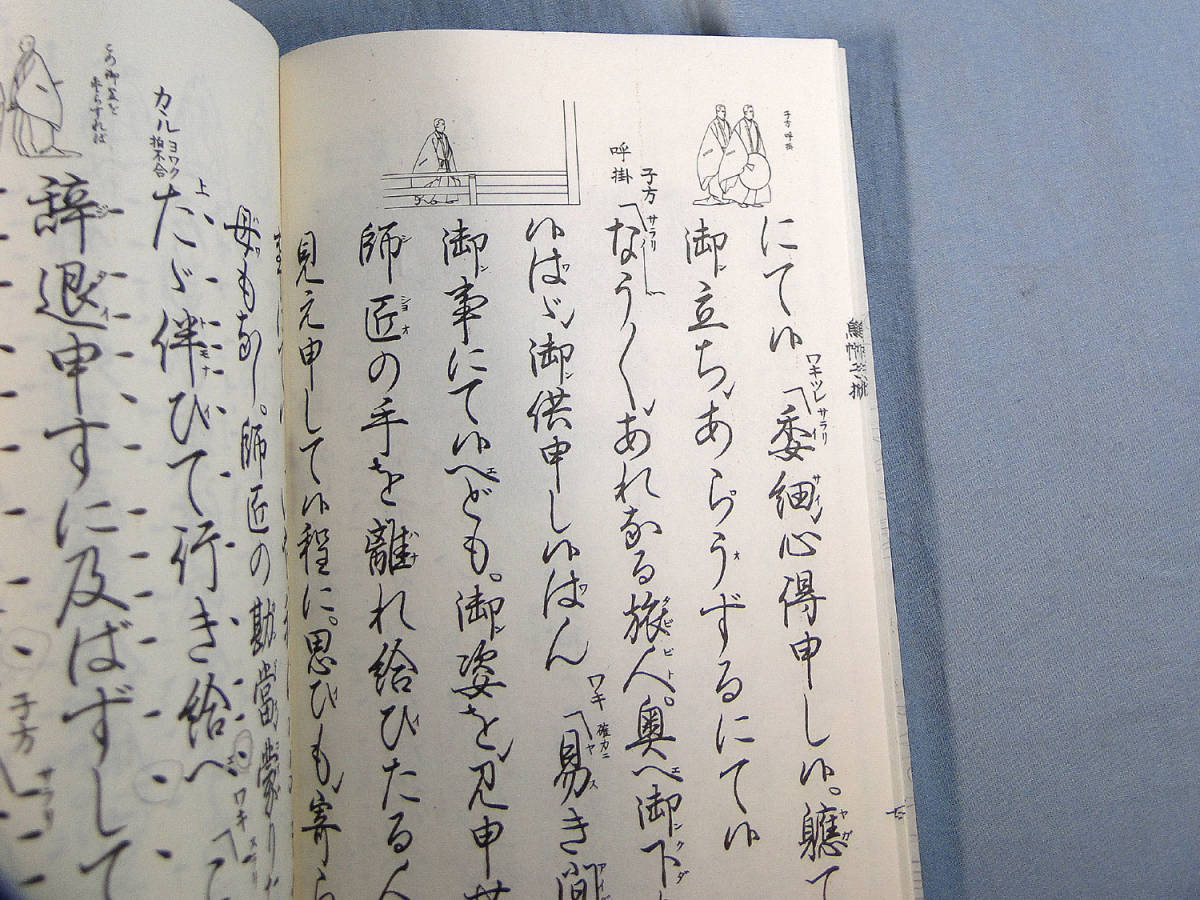 子方呼掛
にて候
ワキツレ サラリ
「委細心得申し候。軈て
御立ちあらうずるにて候
子方 サラリ
呼掛
「なう〱、あれなる旅人。奥へ御下
候はゞ、御供申し候はん
ワキ 確カニ
「易き間
御事にて候へども。御姿を見申せ
師匠の手を離れ給ひたる人
見え申して候程に。思ひも寄ら
母もなし。師匠の勘當蒙り
カヽル ヨワク 拍不合
上
たゞ伴ひて行き給へ
ワキ
辞退申すに及ばずして
子方 サラリ